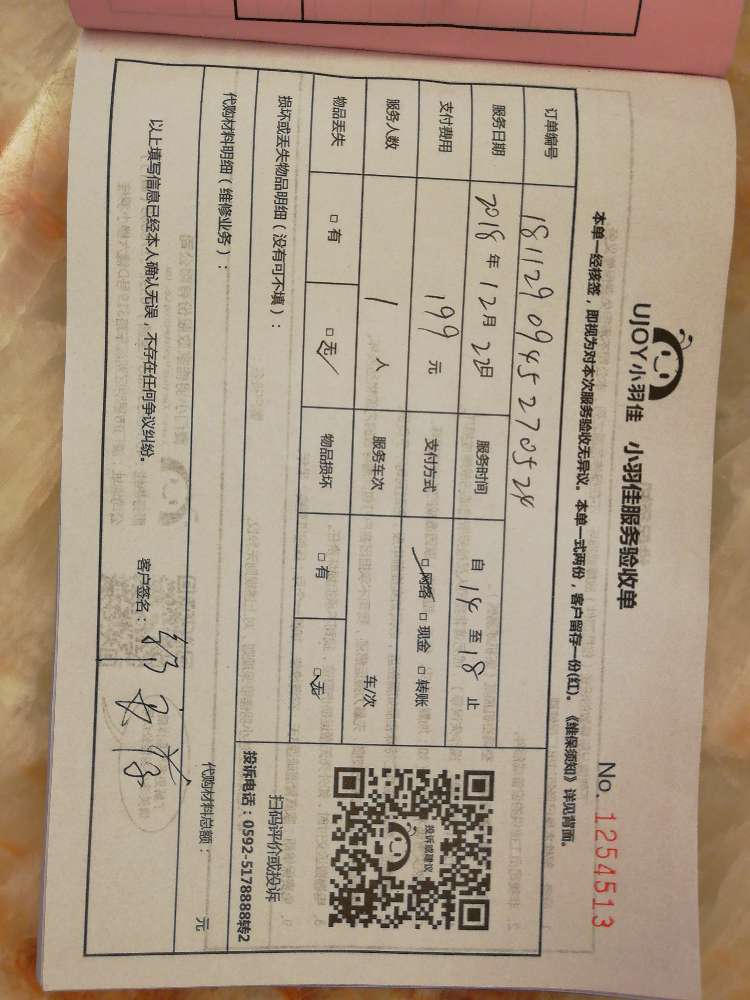 UJOY小羽佳 小羽佳服务验收单
No. 1254513
本单一经核签，即视为对本次服务验收无异议。本单一式两份，客户留存一份(红)。《维保须知》详见背面。
订单编号 1811290945270524
服务日期 2018 年 12 月 22 日 服务时间 自 14 至 18 止
支付费用 199 元 支付方式 □网络 □现金 □转账
服务人数 1 人 服务车次 车/次
物品丢失 □有 □无 物品损坏 □有 □无
投诉或建议
扫码评价或投诉
投诉电话：0592-5178888转2
损坏或丢失物品明细（没有可不填）：
代购材料明细（维修业务）：
代购材料总额： 元
以上填写信息已经本人确认无误，不存在任何争议纠纷。 客户签名：